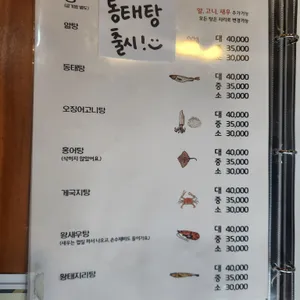 동태탕
출시!
알, 고니, 새우 추가가능
모든 탕은 지리로 변경가능
알탕
대 40,000
중 35,000
소 30,000
동태탕
대 40,000
중 35,000
소 30,000
오징어고니탕
대 40,000
중 35,000
소 30,000
홍어탕
(삭히지 않았어요)
대 40,000
중 35,000
소 30,000
게국지탕
대 40,000
중 35,000
소 30,000
왕새우탕
대 40,000
중 35,000
소 30,000
황태지리탕
대 40,000
중 35,000
소 30,000